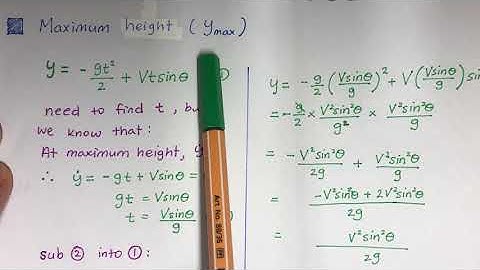 Maximum height (ymax)
y = - gt²/2 + Vt sinθ
need to find t, bu
we know that:
At maximum height, y
∴ ẏ = -gt + Vsinθ =
gt = Vsinθ
t = Vsinθ/g
sub ② into ①:
y = - g/2 (Vsinθ/g)² + V(Vsinθ/g) sin
= - g/2 × V²sin²θ/g² × V²sin²θ/g
= - V²sin²θ/2g + V²sin²θ/g
= -V²sin²θ + 2V²sin²θ/2g
= V²sin²θ/2g
Art. No. 88/36